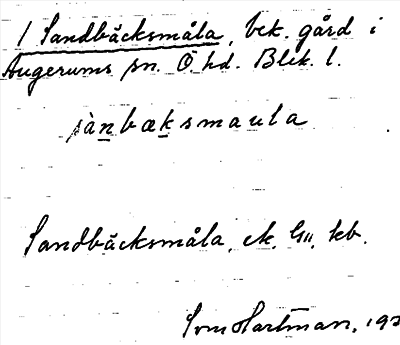 1 Sandbäcksmåla, bek. gård i
Augerums sn. Ö. hd. Blek. l.
sànbæksmaula
Sandbäcksmåla, ek. kb.
Sven Hartman, 193